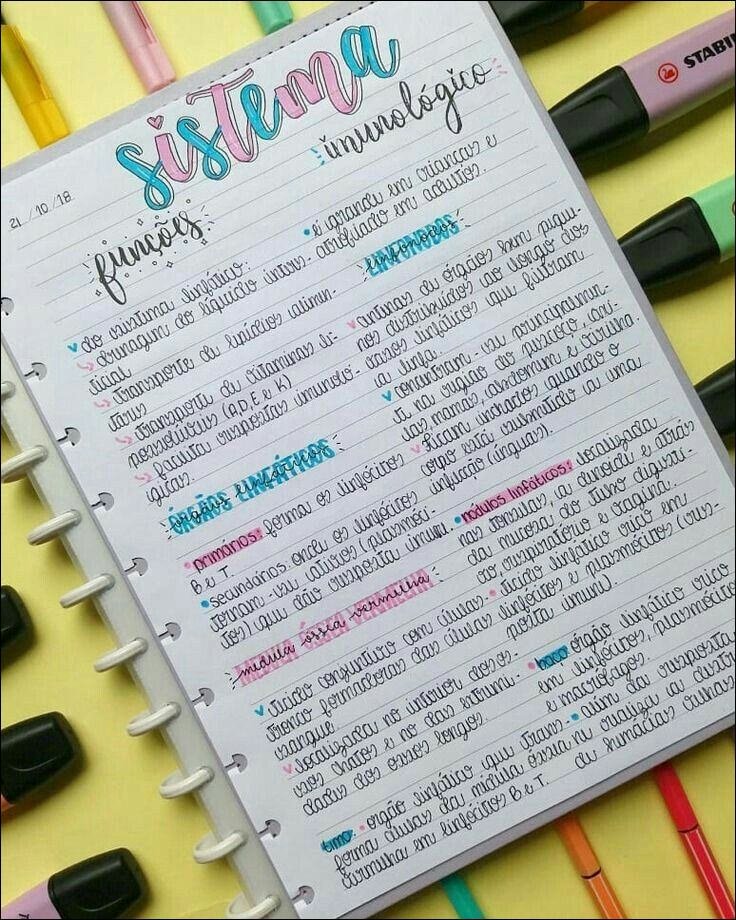 sistema
imunológico
21/10/18
funções
do sistema linfático:
drenagem do líquido inters-
ticial
transporte de lipídios alimen-
tares
transporte de vitaminas li-
possolúveis (A, D, E e K)
facilita respostas imunoló-
gicas.
órgãos linfáticos
ÓRGÃOS LINFÁTICOS
primários: forma os linfócitos
B e T.
secundários: onde os linfócitos
tornam-se ativos (plasmóci-
tos) (que dão resposta imun)
medula óssea vermelha
MEDULA ÓSSEA VERMELHA
tecido conjuntivo com células-
tronco formadoras das células
sangue.
localizada no interior dos os-
sos chatos e no das extremi-
dades dos ossos longos.
timo: orgão linfático que trans-
forma células da medula óssea
vermelha em linfócitos B e T.
é grande em crianças e
atrofiado em adultos.
linfonodos
LINFONODOS
centenas de órgãos bem peque-
nos distribuídos ao longo dos
vasos linfáticos que filtram
a linfa.
concentram-se principalmen-
te na região do pescoço, axi-
las, mamas, abdomem e virilha.
ficam inchados quando o
corpo está submetido a uma
infecção (ínguas).
nódulos linfáticos: localizada
nas tonsilas, a denoide e atrás
da mucosa do tubo digesti-
vo respiratório e vagina.
tecido linfático rico em
linfócitos e plasmócitos (res-
posta imun).
baço: órgão linfático rico
em linfócitos, plasmócito
e macrófagos.
além da resposta
realiza a destr
de hemácias
STABILO